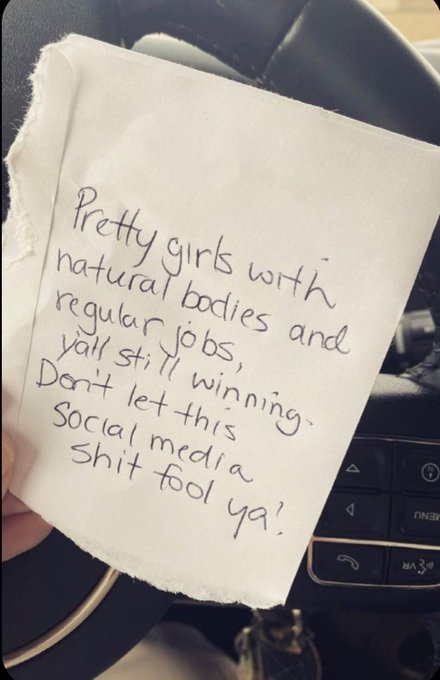 Pretty girls with
natural bodies and
regular jobs,
yall still winning.
Don't let this
Social media
shit fool ya!
N
MENU
VR